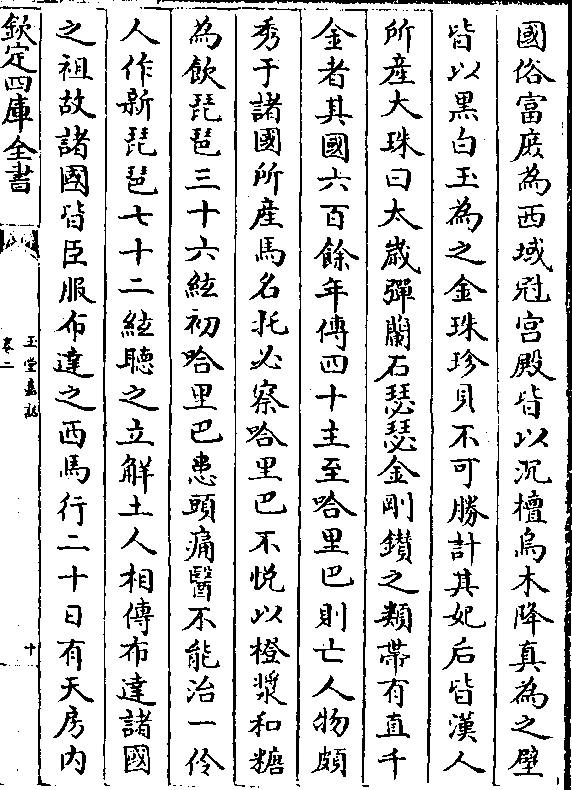 國俗富庻為西域冠宫殿皆以沉檀烏木降真為之壁
皆以黑白玉為之金珠珍貝不可勝計其妃后皆漢人
所産大珠曰太嵗彈蘭石瑟瑟金剛鑚之類帶有直千
金者其國六百餘年傳四十主至哈里巴則亡人物頗
秀于諸國所産馬名托必察哈里巴不悦以橙漿和糖
為飲琵琶三十六絃初哈里巴患頭痛醫不能治一伶
人作新琵琶七十二絃聽之立解土人相傳布達諸國
之祖故諸國皆臣服布達之西馬行二十日有天房内
欽定四庫全書
玉堂嘉話
卷二
十